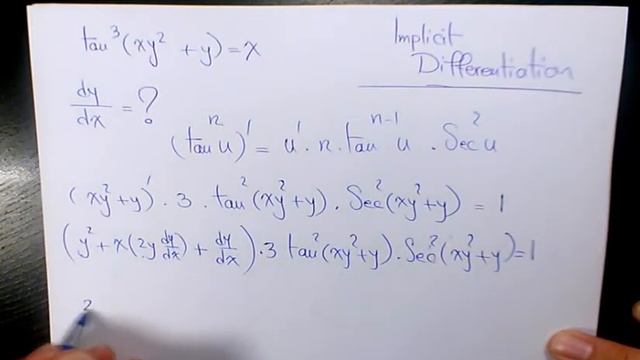 tan³(xy² + y) = x
Implicit
Differentiation
dy/dx = ?
(tanⁿ u)' = u' · n · tanⁿ⁻¹ u · Sec² u
(xy² + y)' · 3 · tan²(xy² + y) · Sec²(xy² + y) = 1
(y² + x(2y dy/dx) + dy/dx) · 3 tan²(xy² + y) · Sec²(xy² + y) = 1
2